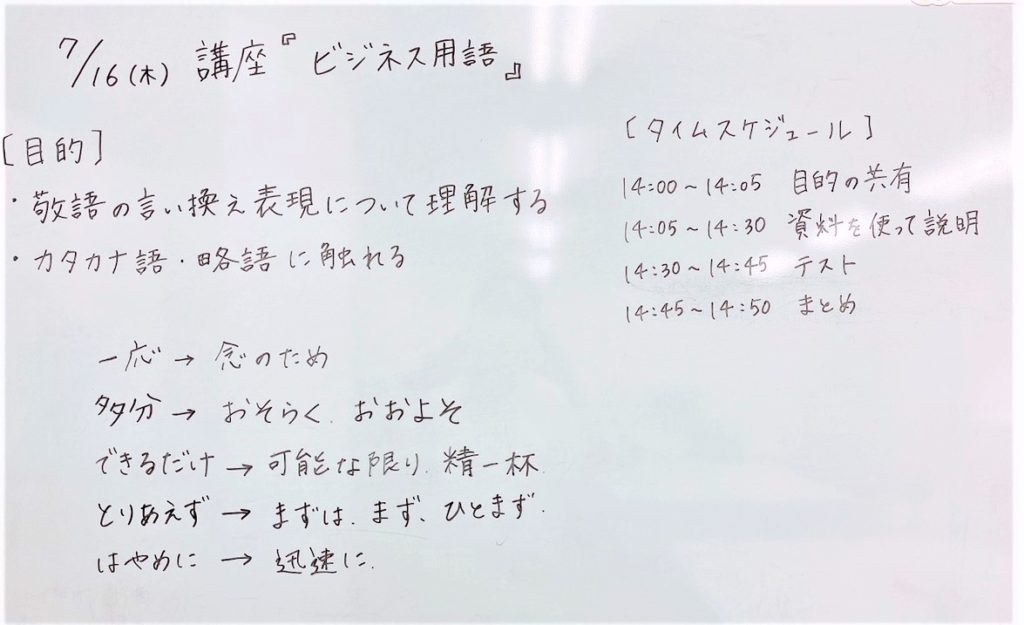 7/16(木) 講座『ビジネス用語』
[目的]
・敬語の言い換え表現について理解する
・カタカナ語・略語に触れる
一応→念のため
多分→おそらく、おおよそ
できるだけ→可能な限り、精一杯、
とりあえず→まずは、まず、ひとまず、
はやめに→迅速に、
[タイムスケジュール]
14:00~14:05 目的の共有
14:05~14:30 資料を使って説明
14:30~14:45 テスト
14:45~14:50 まとめ